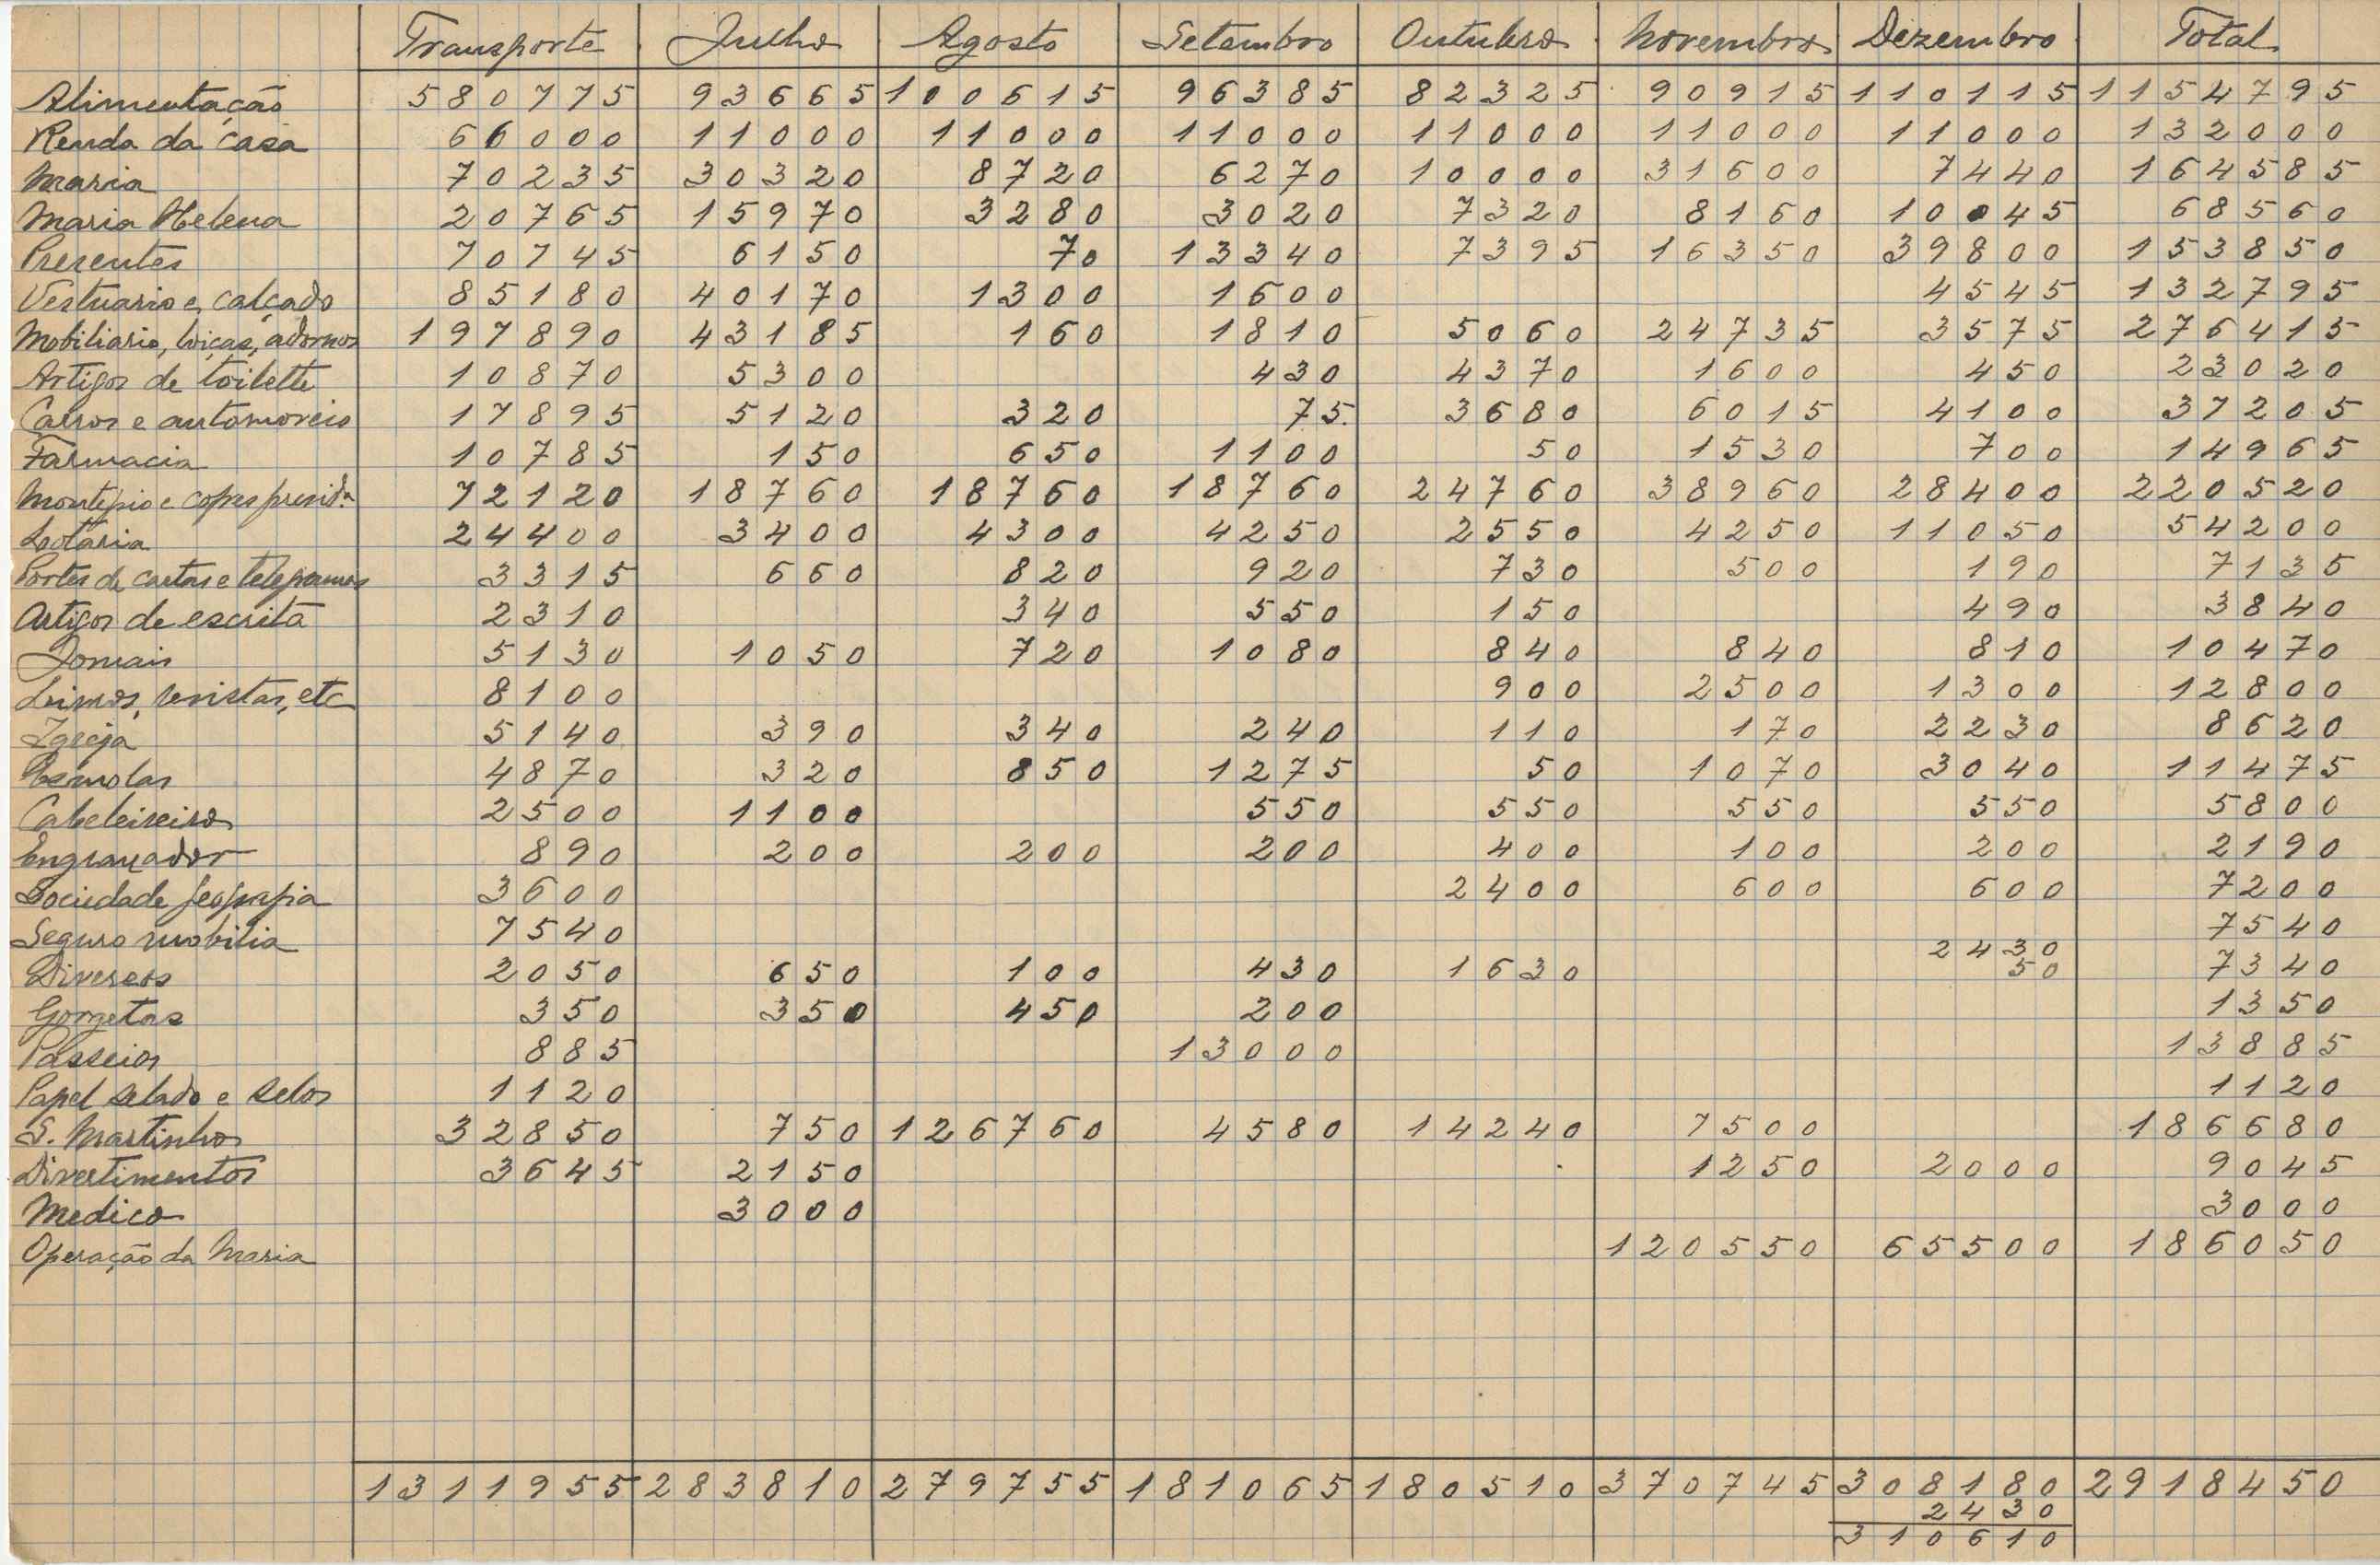 Transporte Julho Agosto Setembro Outubro Novembro Dezembro Total
Alimentação 580775 93665 100615 96385 82325 90915 110115 1154795
Renda da casa 66000 11000 11000 11000 11000 11000 11000 132000
Maria 70235 30320 8720 6270 10000 31600 7440 164585
Maria Helena 20765 15970 3280 3020 7320 8160 10045 68560
Presentes 70745 6150 70 13340 7395 16350 39800 153850
Vestuario e calçado 85180 40170 1300 1600 4545 132795
Mobiliario, loiças, adornos 197890 43185 160 1810 5060 24735 3575 276415
Artigos de toilette 10870 5300 430 4370 1600 450 23020
Carros e automoveis 17895 5120 320 75 3680 6015 4100 37205
Farmacia 10785 150 650 1100 50 1530 700 14965
Montepio e cofres presid.ª 72120 18760 18760 18760 24760 38960 28400 220520
Lotaria 24400 3400 4300 4250 2550 4250 11050 54200
Portes de cartas e telegramas 3315 660 820 920 730 500 190 7135
Artigos de escrita 2310 340 550 150 490 3840
Jornais 5130 1050 720 1080 840 840 810 10470
Livros, revistas, etc 8100 900 2500 1300 12800
Igreja 5140 390 340 240 110 170 2230 8620
Esmolas 4870 320 850 1275 50 1070 3040 11475
Cabeleireiro 2500 1100 550 550 550 550 5800
Engraxador 890 200 200 200 400 100 200 2190
Sociedade geografia 3600 2400 600 600 7200
Seguro mobilia 7540 7540
2430
Diversos 2050 650 100 430 1630 50 7340
Gorgetas 350 350 450 200 1350
Passeios 885 13000 13885
Papel selado e selos 1120 1120
S. Martinho 32850 750 126760 4580 14240 7500 186680
Divertimentos 3645 2150 1250 2000 9045
Medico 3000 3000
Operação da Maria 120550 65500 186050
1311955 283810 279755 181065 180510 370745 308180 2918450
2430
310610